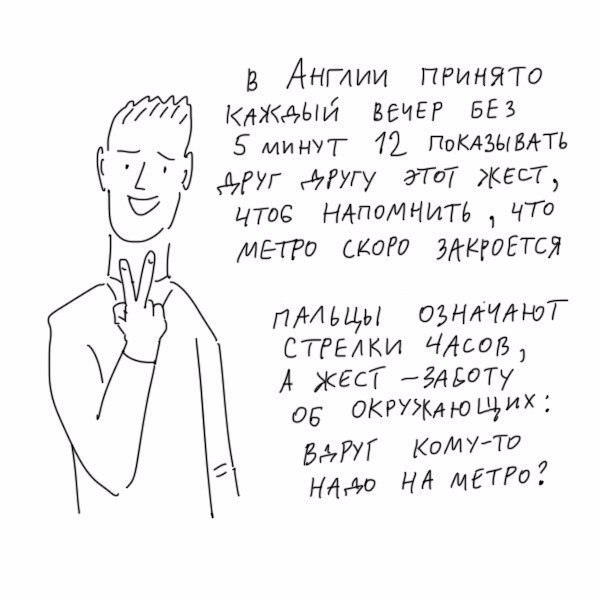 В АНГЛИИ ПРИНЯТО
КАЖДЫЙ ВЕЧЕР БЕЗ
5 МИНУТ 12 ПОКАЗЫВАТЬ
ДРУГ ДРУГУ ЭТОТ ЖЕСТ,
ЧТОБ НАПОМНИТЬ, ЧТО
МЕТРО СКОРО ЗАКРОЕТСЯ
ПАЛЬЦЫ ОЗНАЧАЮТ
СТРЕЛКИ ЧАСОВ,
А ЖЕСТ – ЗАБОТУ
ОБ ОКРУЖАЮЩИХ:
ВДРУГ КОМУ-ТО
НАДО НА МЕТРО?